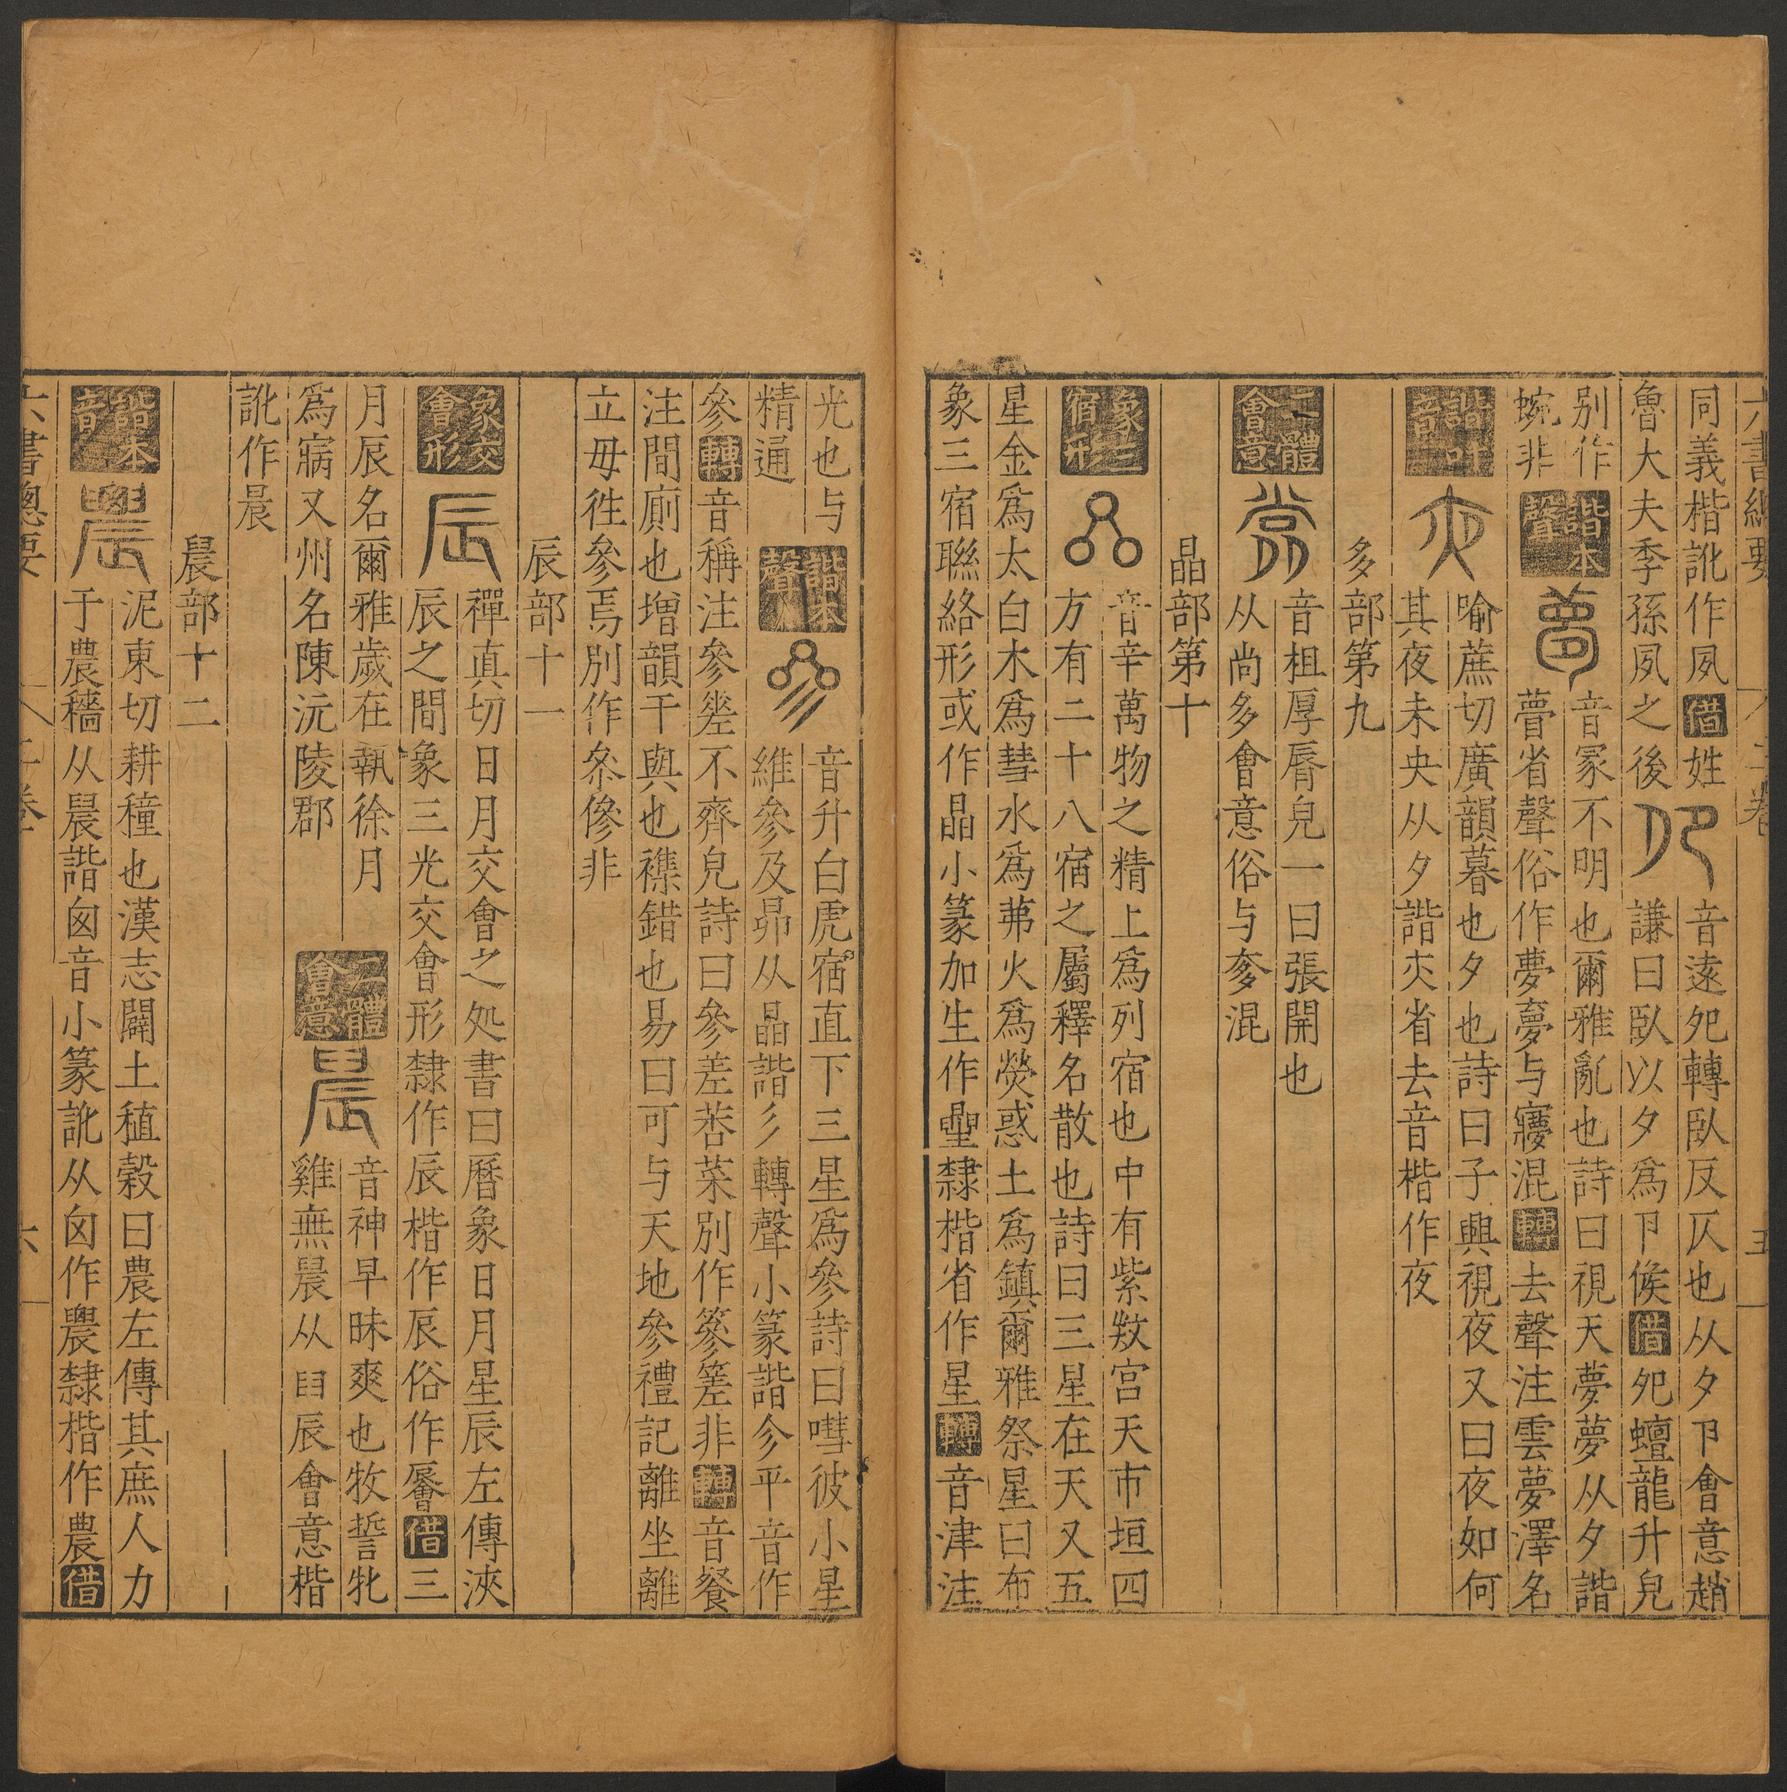 六書總要 二卷 五
同義楷訛作夙借姓 音遠夗轉臥反仄也从夕卪會意趙
魯大夫季孫夙之後 謙曰臥以夕爲卪候借夗蟺龍升皃
別作 諧本聲 音冢不明也爾雅亂也詩曰視天夢夢从夕諧
蜿非 瞢省聲俗作夢㝱与寱混轉去聲注雲夢澤名
諧叶音 喻蔗切廣韻暮也夕也詩曰子興視夜又曰夜如何
其夜未央从夕諧夾省去音楷作夜
多部第九
二體會意 音柤厚脣皃一曰張開也
从尚多會意俗与奓混
晶部第十
象二宿形 音辛萬物之精上爲列宿也中有紫㪅宮天市垣四
方有二十八宿之屬釋名散也詩曰三星在天又五
星金爲太白木爲彗水爲茀火爲熒惑土爲鎮爾雅祭星曰布
象三宿聯絡形或作晶小篆加生作曐隸楷省作星轉音津注
光也与 諧本聲 音升白虎宿直下三星爲參詩曰嘒彼小星
精通 維參及昴从晶諧彡轉聲小篆諧㐱平 音作
參轉音稱注參㘸不齊皃詩曰參差荇菜別作篸䇎非轉音餐
注間廁也增韻干與也襍錯也易曰可与天地參禮記離坐離
立毋徃參焉別作叅傪非
辰部十一
象交會形 禪真切日月交會之処書曰曆象日月星辰左傳浹
辰之間象三光交會形隸作辰楷作辰俗作㬜借三
月辰名爾雅歲在執徐月 二體會意 音神早昧爽也牧誓牝
爲㾕又州名陳沅陵郡 雞無晨从𦥑辰會意楷
訛作晨
晨部十二
諧本音 泥東切耕種也漢志闢土稙穀曰農左傳其庶人力
于農穡从晨諧囟音小篆訛从囟作䢉隸楷作農借
六書總要 二卷 六